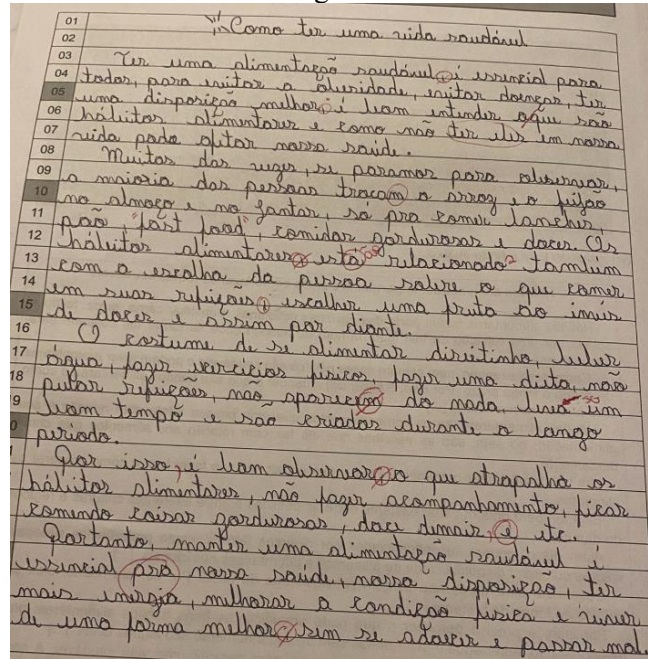 01 Como ter uma vida saudável
02
03 Ter uma alimentação saudável, é essencial para
04 todos, para evitar a obesidade, evitar doenças, ter
05 uma disposição melhor, é bom entender oque são
06 hábitos alimentares e como não ter eles em nossa
07 vida pode afetar nossa saúde.
08 Muitas das vezes, se paramos para observar,
09 a maioria das pessoas trocam o arroz e o feijão
10 no almoço e no jantar, só pra comer lanches,
11 pão, "fast food", comidas gordurosas e doces. Os
12 hábitos alimentares, está relacionado também
13 com a escolha da pessoa sobre o que comer
14 em suas refeições, escolher uma fruta ao invés
15 de doces e assim por diante.
16 O costume de se alimentar direitinho, beber
17 água, fazer exercícios físicos, fazer uma dieta, não
18 pular refeições, não aparecem do nada, leva um
9 bom tempo e são criados durante o longo
0 período.
Por isso, é bom observar, o que atrapalha os
hábitos alimentares, não fazer acompanhamento, ficar
comendo coisas gordurosas, doce demais, e etc.
Portanto, manter uma alimentação saudável é
essencial pra nossa saúde, nossa disposição, ter
mais energia, melhorar a condição física e viver
de uma forma melhor, sem se adoecer e passar mal.